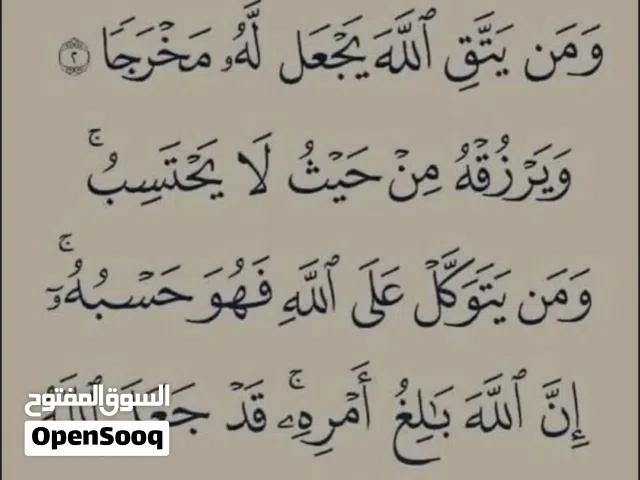 وَمَن يَتَّقِ ٱللَّهَ يَجْعَل لَّهُۥ مَخْرَجًا ٢
وَيَرْزُقْهُ مِنْ حَيْثُ لَا يَحْتَسِبُ ۚ
وَمَن يَتَوَكَّلْ عَلَى ٱللَّهِ فَهُوَ حَسْبُهُۥٓ ۚ
إِنَّ ٱللَّهَ بَٰلِغُ أَمْرِهِۦ ۚ قَدْ جَعَلَ ٱللَّهُ
السوق المفتوح
OpenSooq